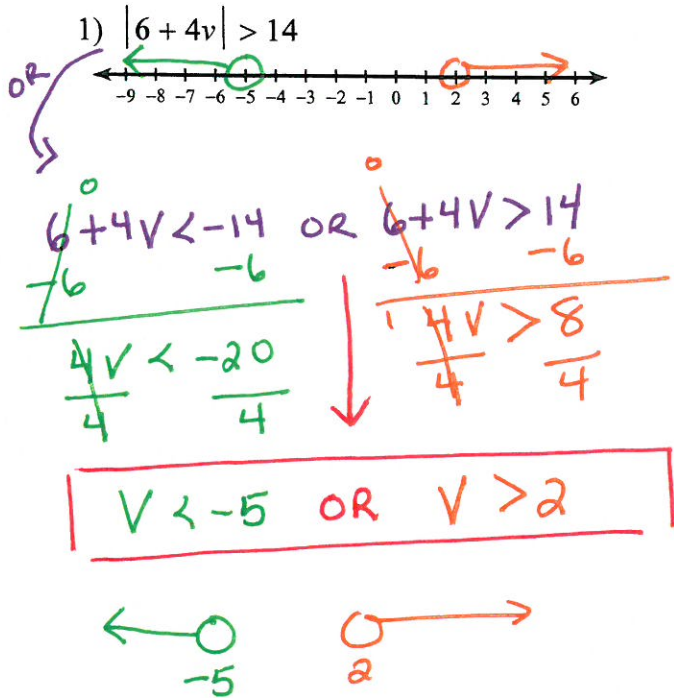 1) |6 + 4v| > 14
OR
-9 -8 -7 -6 -5 -4 -3 -2 -1 0 1 2 3 4 5 6
0 0
6 + 4V < -14 OR 6 + 4V > 14
-6 -6 -6 -6
4V < -20 1 4V > 8
4 4 4 4
V < -5 OR V > 2
-5 2